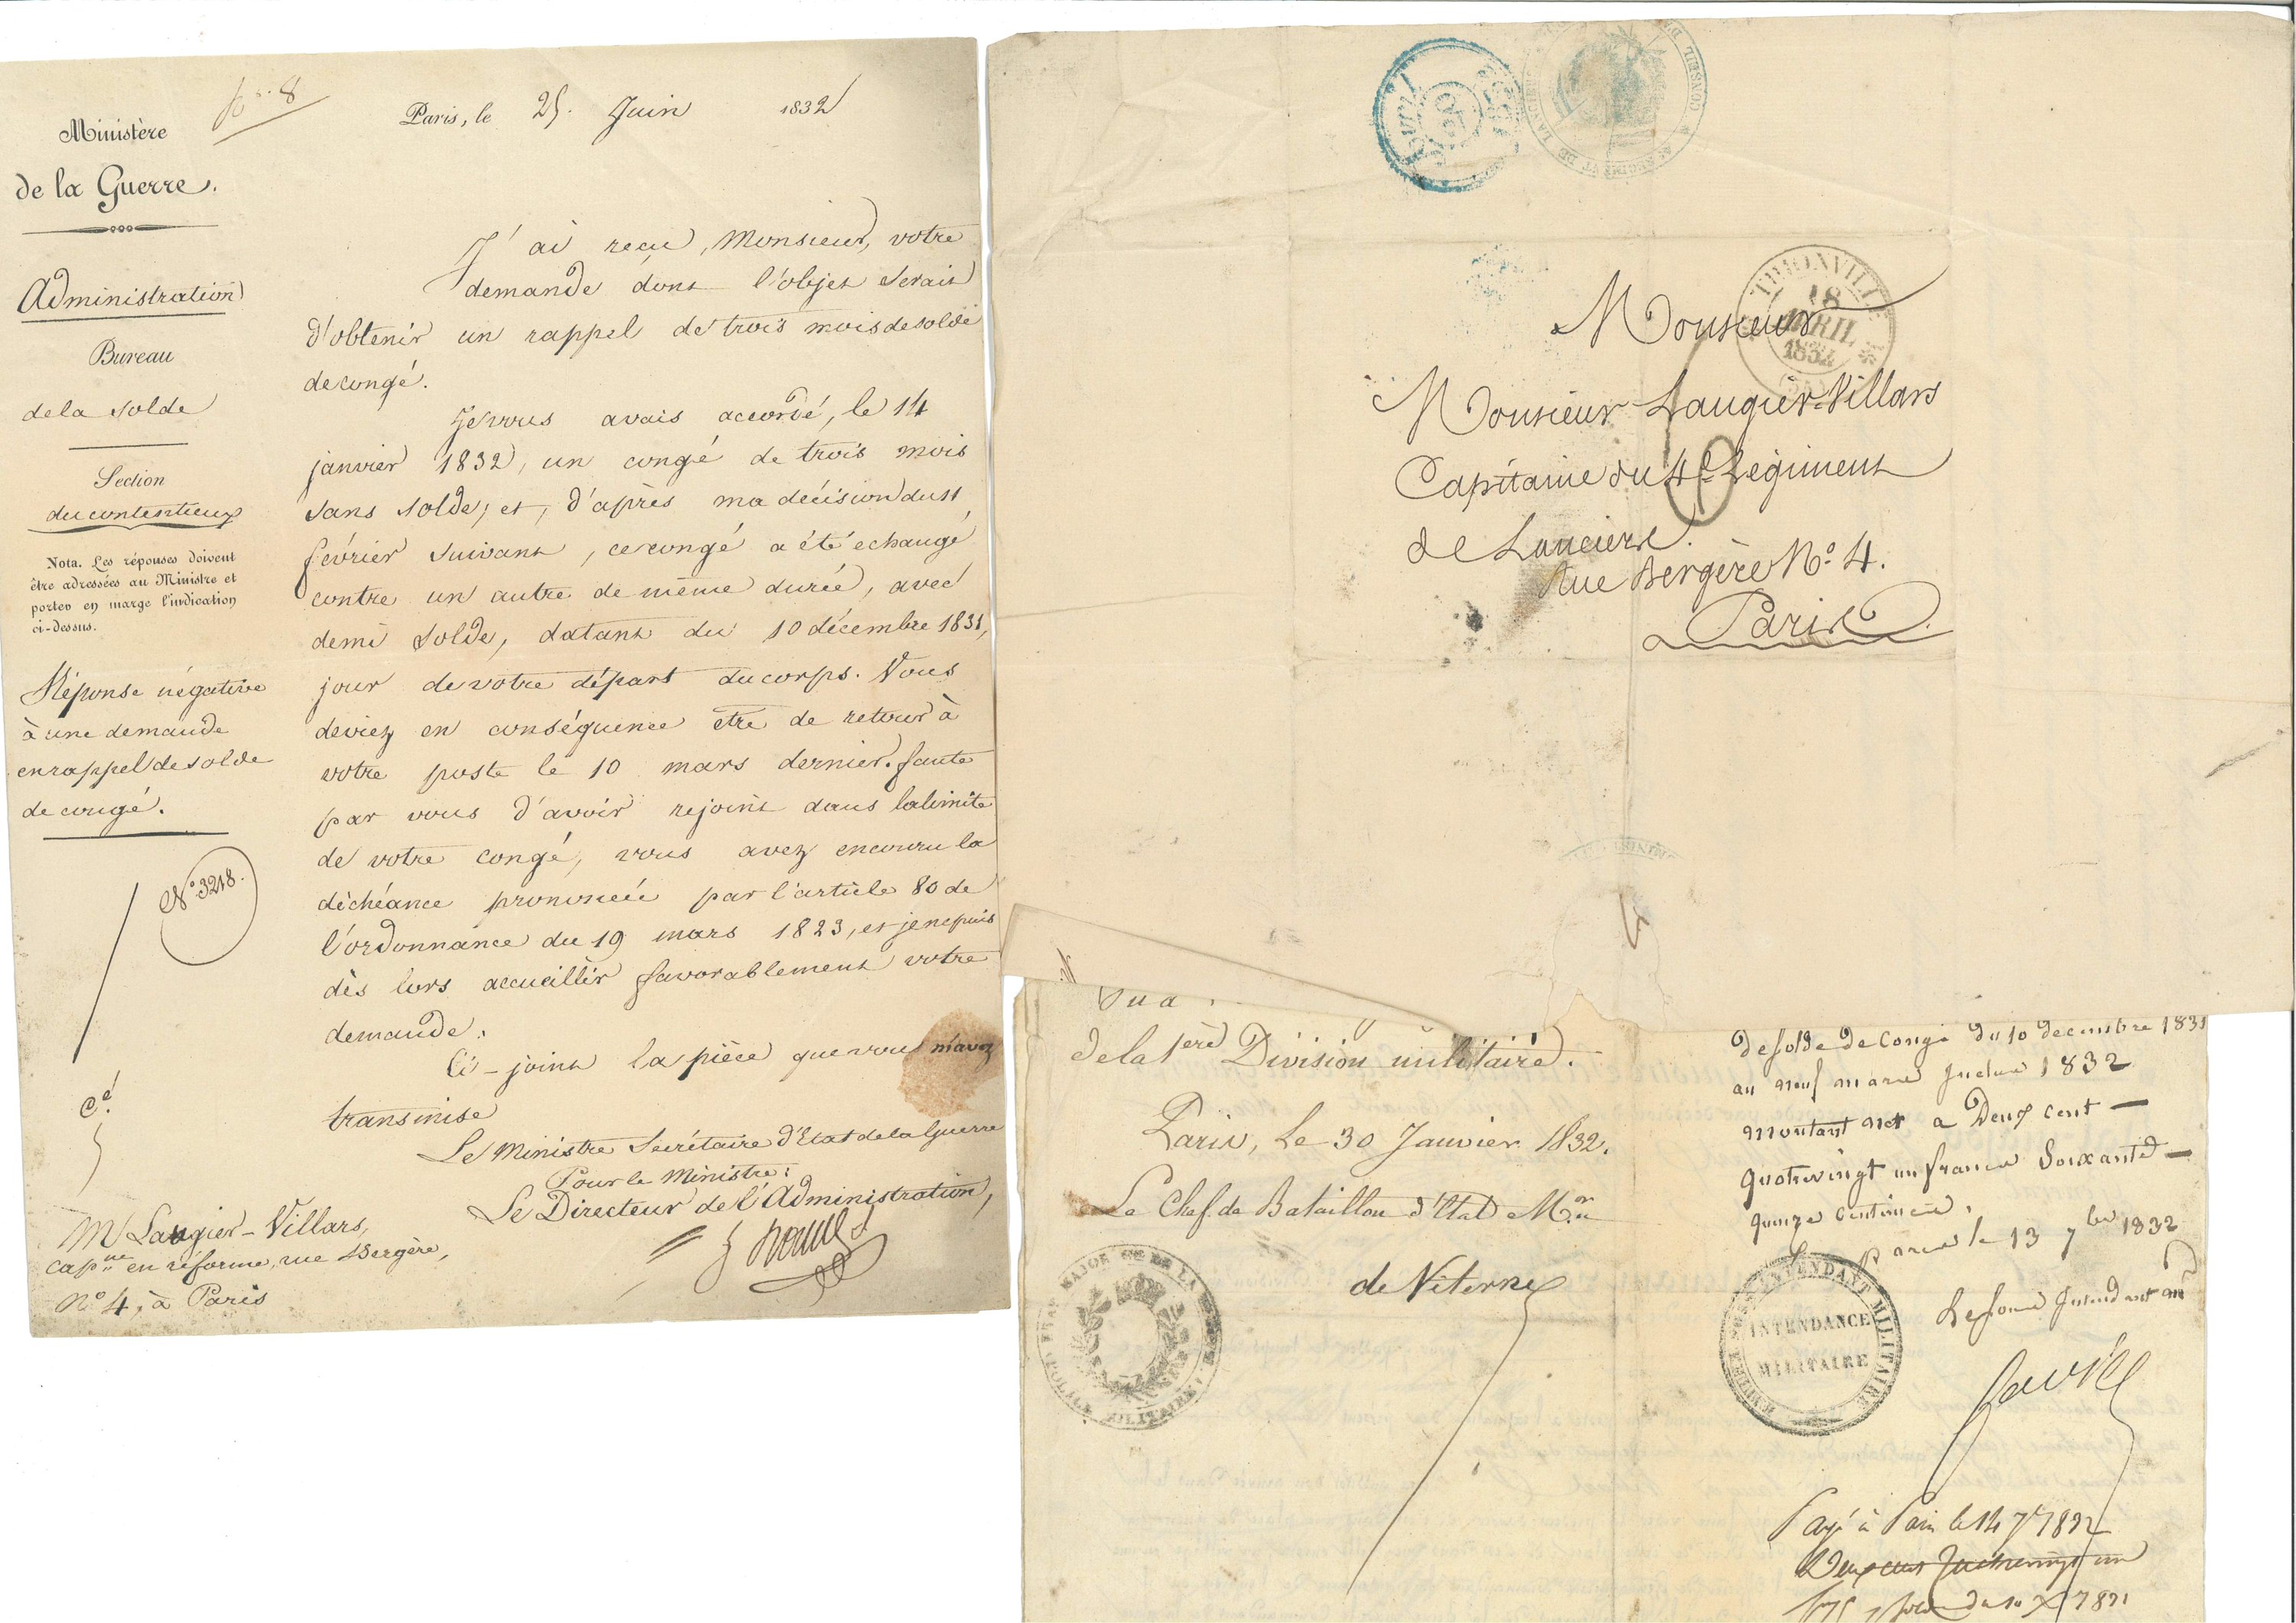 Ministère
de la Guerre.
Administration
Bureau
de la solde
Section
du contentieux
Nota. Les réponses doivent
être adressées au Ministre et
porter en marge l'indication
ci-dessus.
Réponse négative
à une demande
en rappel de solde
de congé.
N.º 3218.
Mr Laugier-Villars,
capne en réforme, rue Bergère,
Nº 4, à Paris
Paris, le 25. Juin 1832
J'ai reçu, Monsieur, votre
demande dont l'objet serait
d'obtenir un rappel de trois mois de solde
de congé.
Je vous avais accordé, le 14
janvier 1832, un congé de trois mois
sans solde; et, d'après ma décision du 11
février suivant, ce congé a été échangé
contre un autre de même durée, avec
demi solde, datant du 10 décembre 1831,
jour de votre départ du corps. Vous
deviez en conséquence être de retour à
votre poste le 10 mars dernier. faute
par vous d'avoir rejoint dans la limite
de votre congé, vous avez encouru la
déchéance prononcée par l'article 80 de
l'ordonnance du 19 mars 1823, et je ne puis
dès lors accueillir favorablement votre
demande.
Ci-joint la pièce que vous m'avez
transmise
Le Ministre Secrétaire d'Etat de la Guerre
Pour le Ministre:
Le Directeur de l'Administration,
THIONVILLE
18
AVRIL
1832
Monsieur
Monsieur Laugier-Villars
Capitaine du 4e Régiment
de Lanciers.
Rue Bergère Nº 4.
Paris.
Vu à
de la 1ère Division militaire.
Paris, Le 30 Janvier 1832.
Le Chef de Bataillon d'Etat Mor
de Viterne
ETAT MAJOR GAL DE LA
POLICE MILITAIRE
de solde de Congé du 10 decembre 1831
au neuf mars Inclus 1832
montant net a Deux cent —
quatrevingt un francs Soixante —
quinze centimes.
Paris le 13 7bre 1832
Le sous Intendant mre
INTENDANT MILITAIRE
INTENDANCE
MILITAIRE
Payé à Paris le 14 7bre 1832
Deux cent quatrevingt un